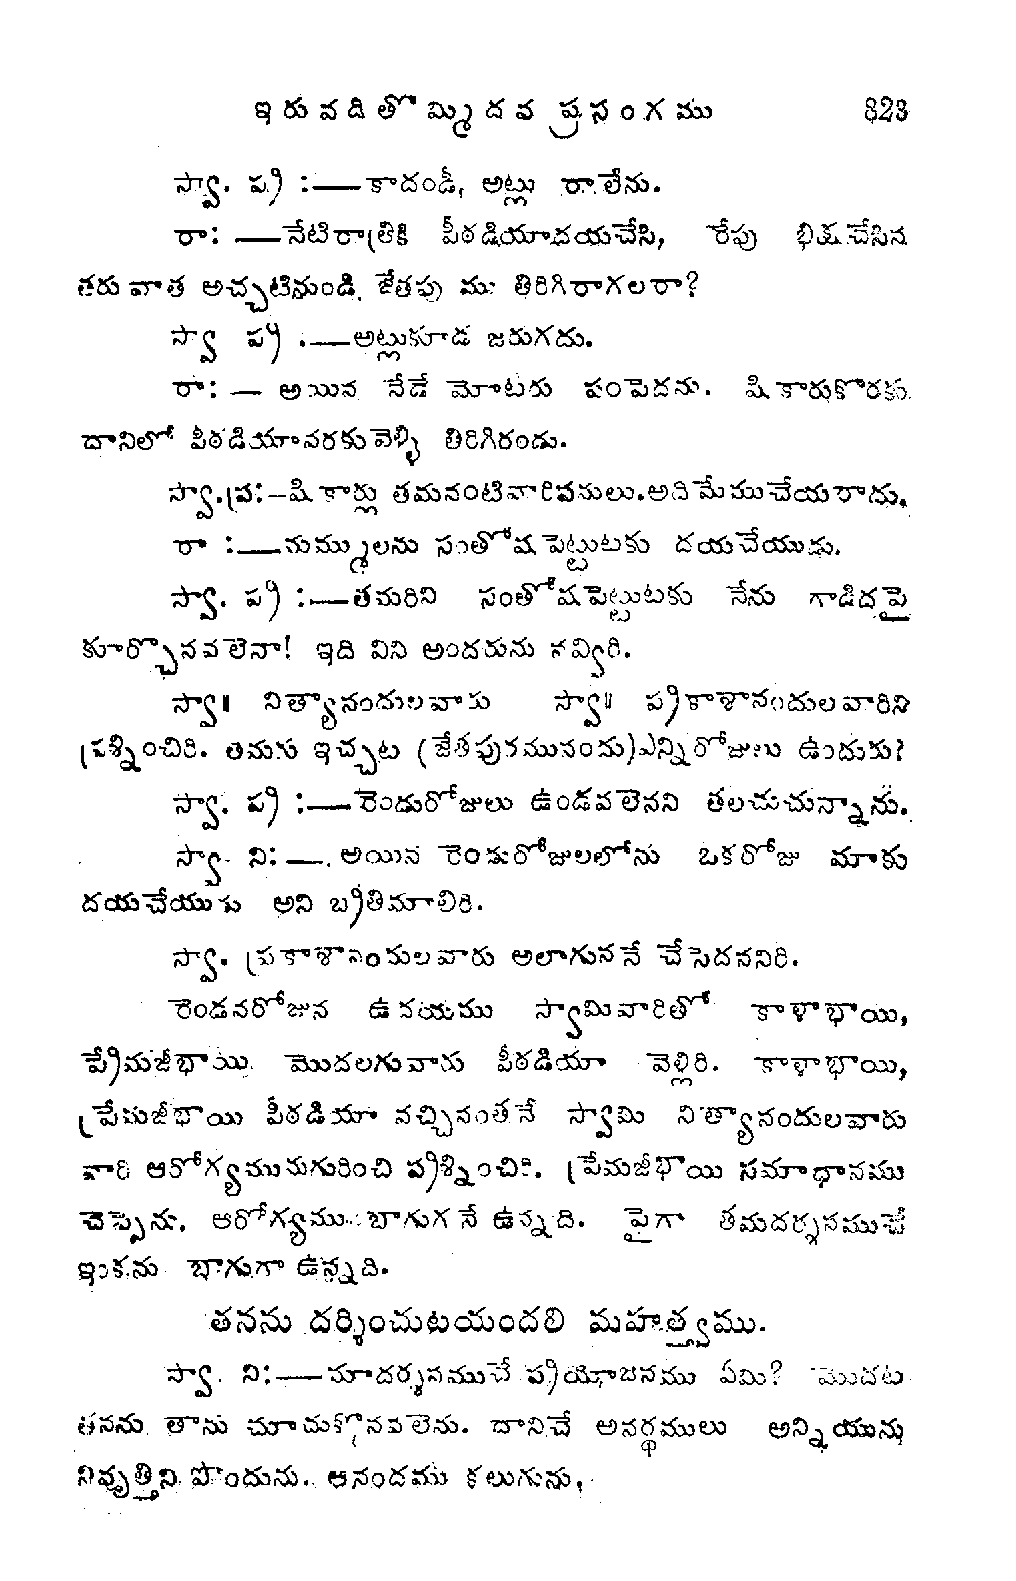 ఇరువదితొమ్మిదవ ప్రసంగము 323
స్వా. ప్ర :—కాదండీ, అట్లు రాలేను.
రా: —నేటిరాత్రికి పీఠడియాదయచేసి, రేపు భిక్షచేసిన
తరువాత అచ్చటినుండి, జేతపురము తిరిగిరాగలరా?
స్వా ప్ర .—అట్లుకూడ జరుగదు.
రా: — అయిన నేడే మోటరు పంపెదను. షికారుకొరకు
దానిలో పీఠడియావరకువెళ్ళి తిరిగిరండు.
స్వా.ప్ర:—షికార్లు తమవంటివారిపనులు.అదిమేముచేయరాదు.
రా :—మమ్ములను సంతోషపెట్టుటకు దయచేయుడు.
స్వా. ప్ర :—తమరిని సంతోషపెట్టుటకు నేను గాడిదపై
కూర్చొనవలెనా! ఇది విని అందరును నవ్విరి.
స్వా॥ నిత్యానందులవారు స్వా॥ ప్రకాశానందులవారిని
ప్రశ్నించిరి. తమరు ఇచ్చట (జేతపురమునందు)ఎన్నిరోజులు ఉందురు?
స్వా. ప్ర :—రెండురోజులు ఉండవలెనని తలచుచున్నాను.
స్వా. ని: —. అయిన రెండురోజులలోను ఒకరోజు మాకు
దయచేయుడు అని బ్రతిమాలిరి.
స్వా. ప్రకాశానందులవారు అలాగుననే చేసెదననిరి.
రెండవరోజున ఉదయము స్వామివారితో కాళాభాయి,
ప్రేమజీభాయి మొదలగువారు పీఠడియా వెళ్లిరి. కాళాభాయి,
ప్రేమజీభాయి పీఠడియా వచ్చినంతనే స్వామి నిత్యానందులవారు
వారి ఆరోగ్యమునుగురించి ప్రశ్నించిరి. ప్రేమజీభాయి సమాధానము
చెప్పెను. ఆరోగ్యము బాగుగనే ఉన్నది. పైగా తమదర్శనముచే
ఇంకను బాగుగా ఉన్నది.
తనను దర్శించుటయందలి మహత్త్వము.
స్వా. ని:—మాదర్శనముచే ప్రయోజనము ఏమి? మొదట
తనను తాను చూచుకొనవలెను. దానిచే అనర్థములు అన్నియును
నివృత్తిని పొందును. ఆనందము కలుగును,